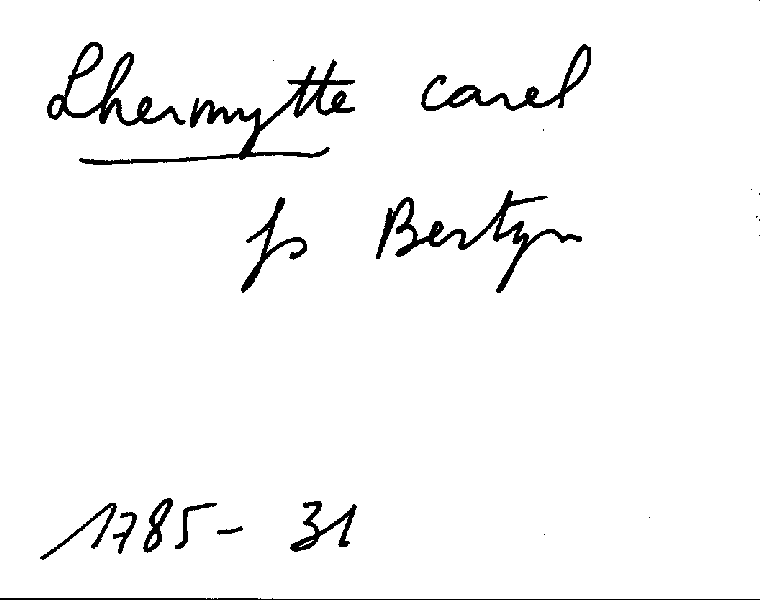 Lhermytte carel
fs Bertyn
1785- 31